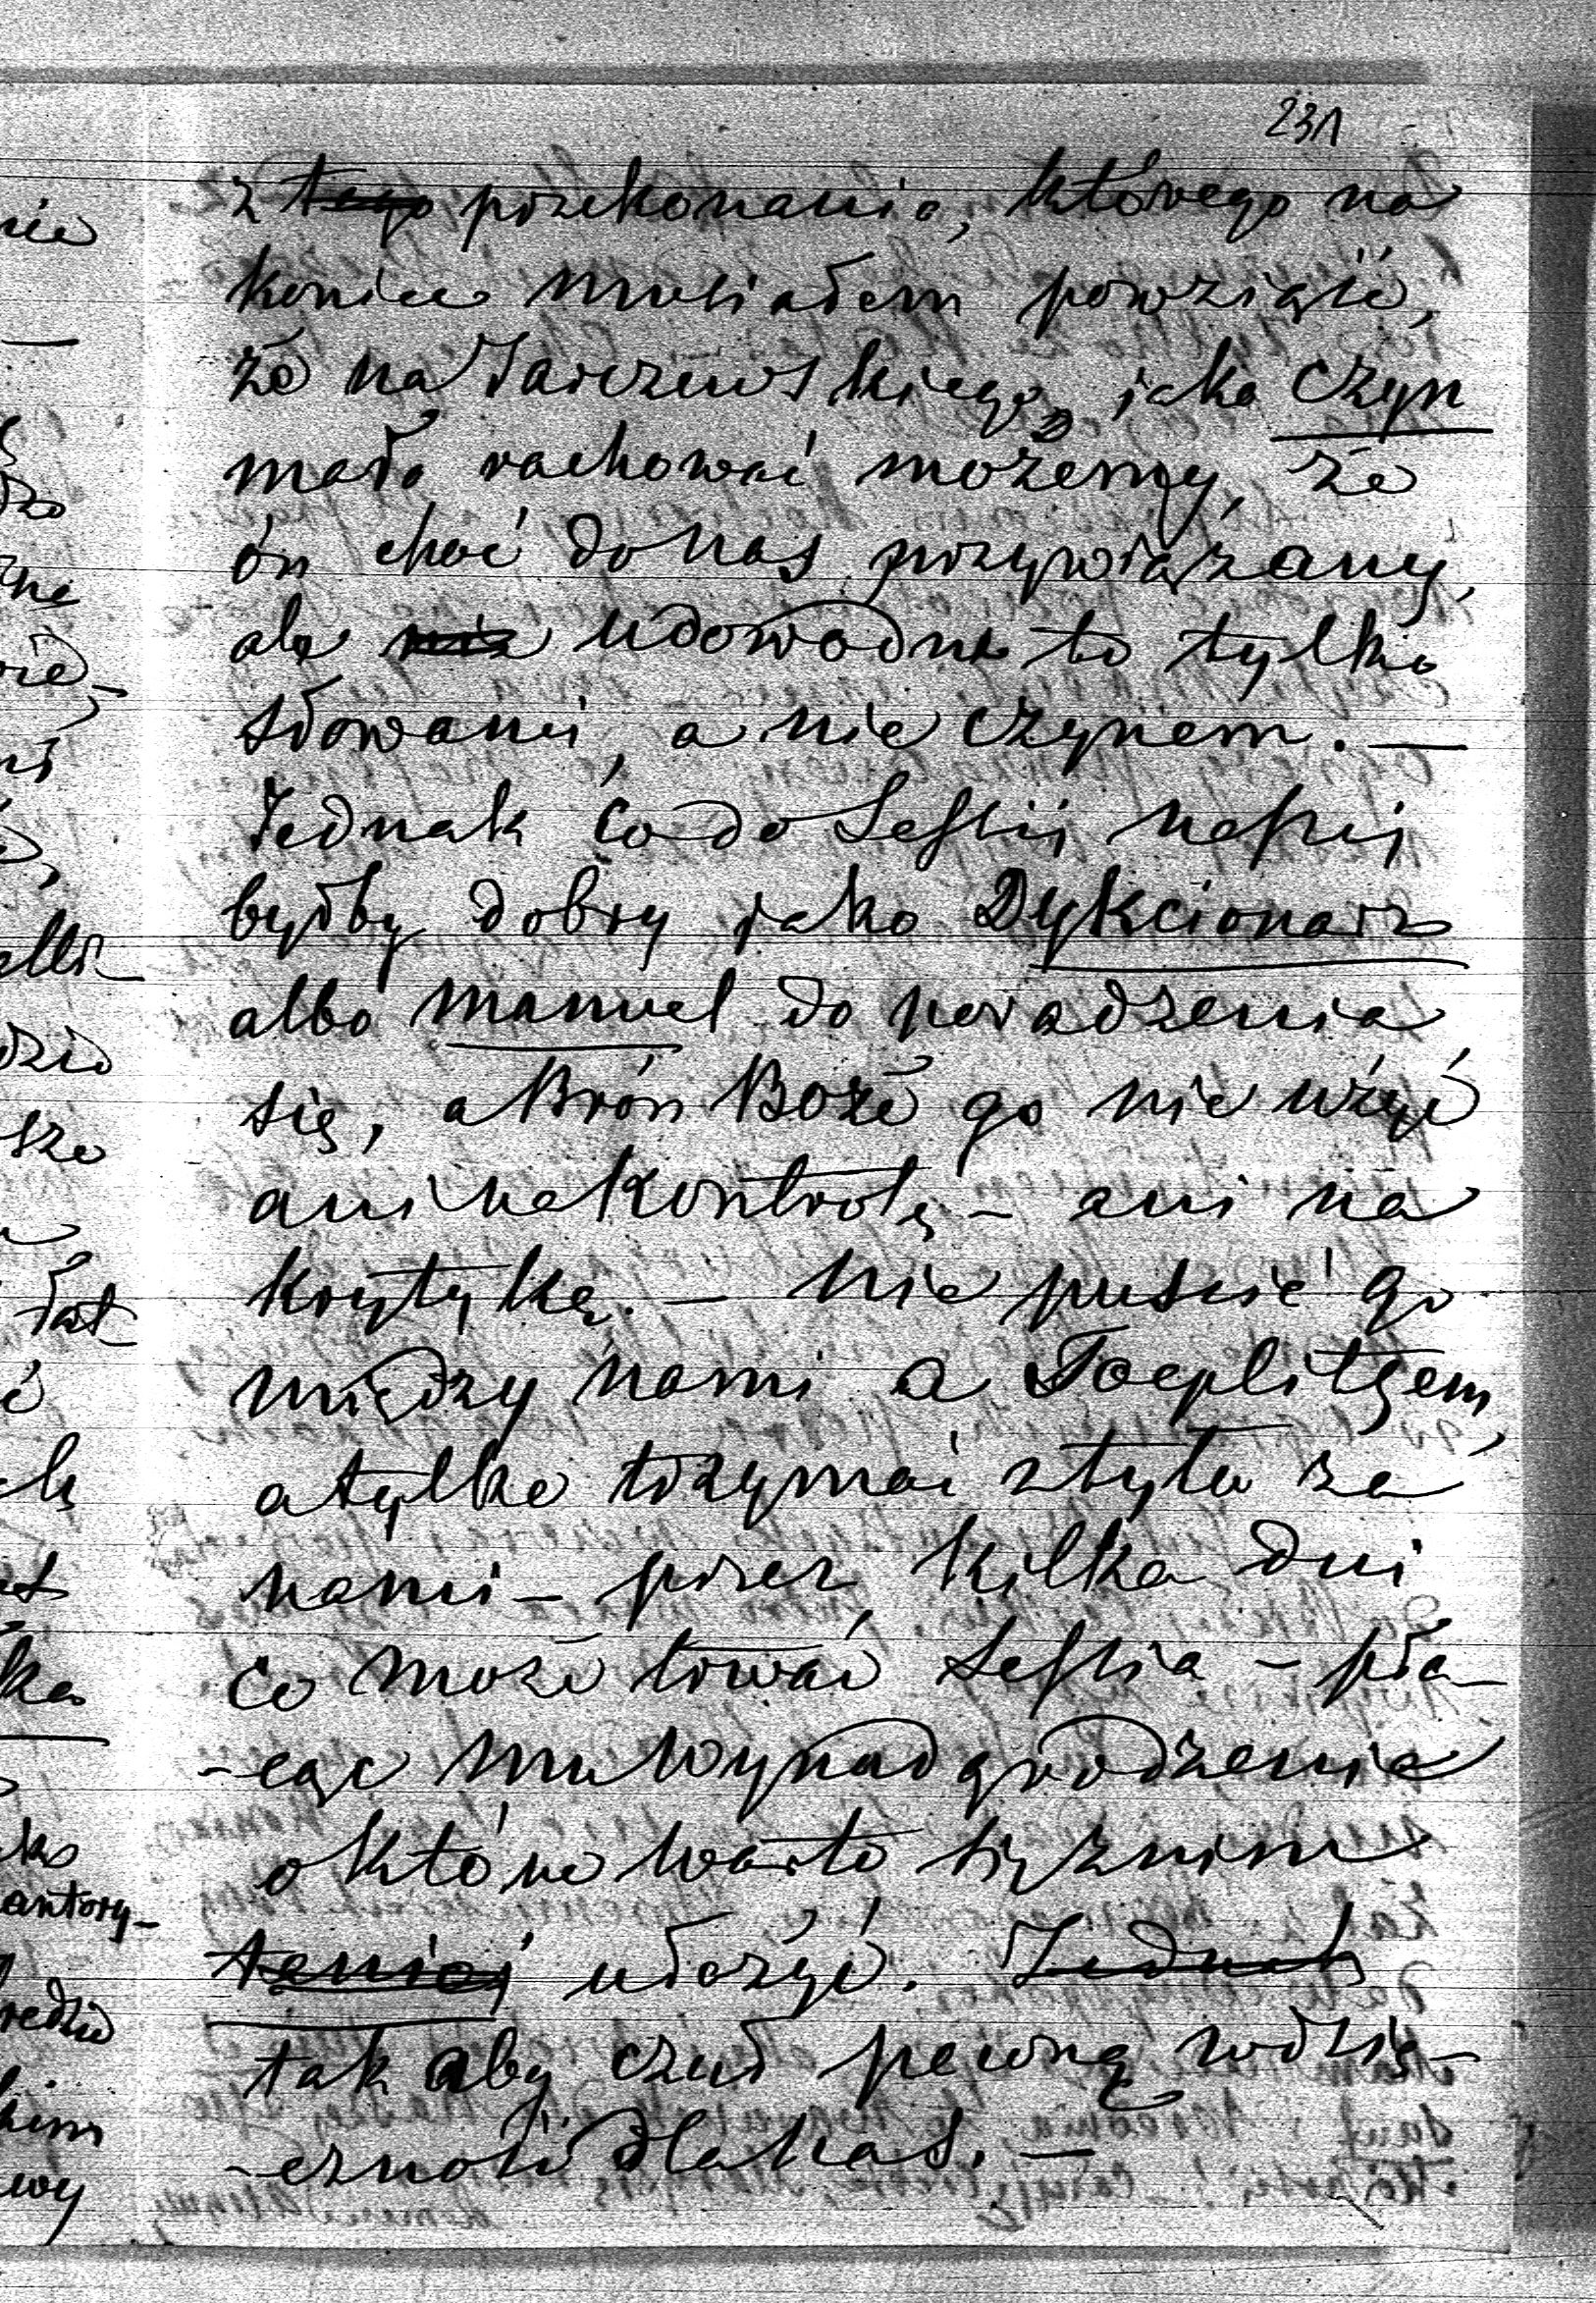 231
z tego przekonania, którego na
koniec musiałem powziąść,
że na Jarczewskiego, jako czyn
mało rachować możemy, że
ón choć do nas przywiązany,
ale nie udowodni to tylko
słowami, a nie czynem. —
Jednak co do Sessii naszej
byłby dobry jako Dykcionarz
albo manuel do poradzenia
się, a Broń Boże go nie użyć
ani na kontrolę – ani na
krytykę. – nie puścić go
między nami a Toeplitzem,
a tylko trzymać z tyłu za
nami – przez kilka dni
co może trwać Sessia – pła-
-cąc mu wynadgrodzenie
o które warto się z nim
taniej ułożyć. Jednak
tak aby czuł pewną wdzię-
-czność dla nas. —